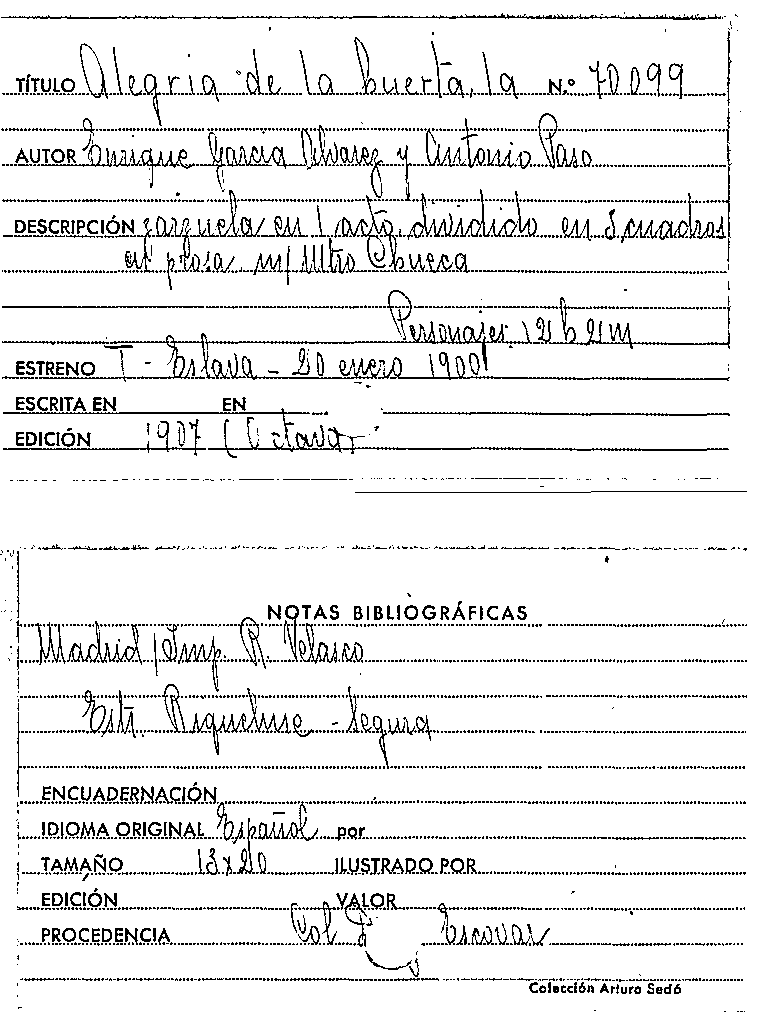 TÍTULO Alegria de la huerta, la N.º 70099
AUTOR Enrique Garcia Alvarez y Antonio Paso
DESCRIPCIÓN zarzuela en 1 acto, dividido en 3 cuadros
en prosa. m/ Mtro Chueca
Personajes: 12 h 2 m
ESTRENO T - Eslava - 20 enero 1900
ESCRITA EN EN
EDICIÓN 1907 (Octava)
NOTAS BIBLIOGRÁFICAS
Madrid / Imp. R. Velasco
Estr. Riquelme - Segura
ENCUADERNACIÓN
IDIOMA ORIGINAL Español por
TAMAÑO 13x20 ILUSTRADO POR
EDICIÓN VALOR
PROCEDENCIA Col Escovar
Colección Arturo Sedó